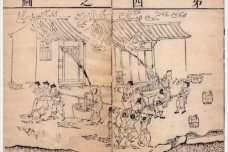 第四之圖